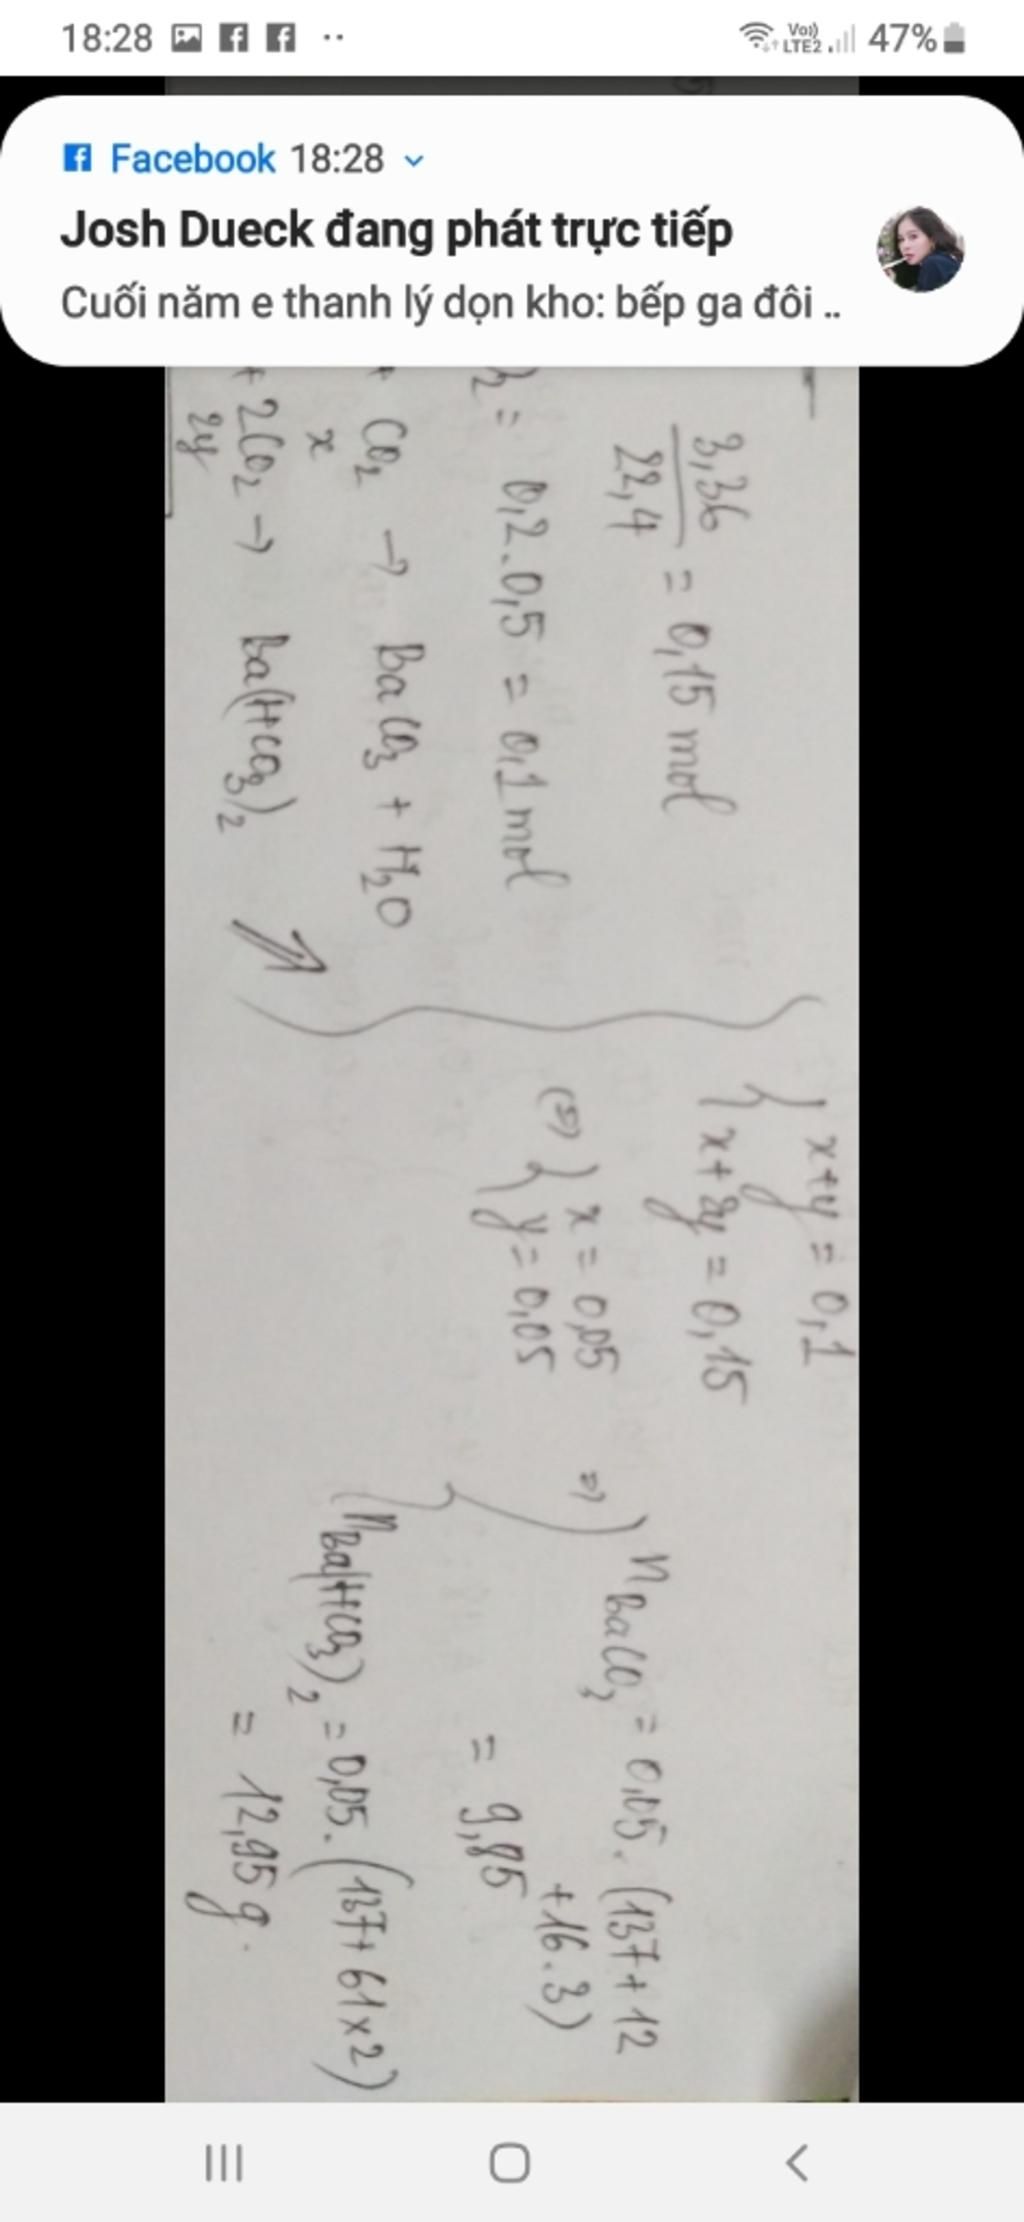 18:28
Vo))
LTE2
47%
Facebook 18:28
Josh Dueck đang phát trực tiếp
Cuối năm e thanh lý dọn kho: bếp ga đôi ..
3,36
22,4
= 0,15 mol
2 = 0,2.0,5 = 0,1 mol
+ CO2 → BaCO3 + H2O
x
+ 2CO2 → Ba(HCO3)2
2y
x+y = 0,1
x+2y = 0,15
(=) x = 0,05
y = 0,05
=) nBaCO3 = 0,05.(137+12
+16.3)
= 9,85
nBa(HCO3)2 = 0,05.(137+61x2)
= 12,95g.